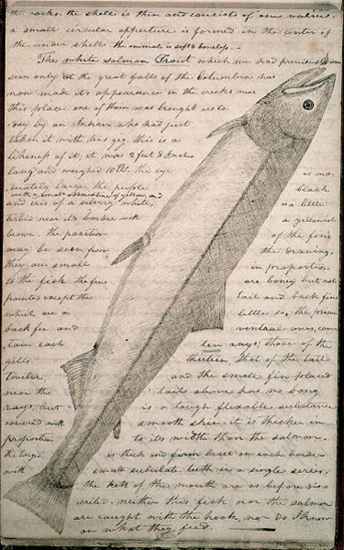 the rocks. the shell is thin and consists of one valve.
a small circular apperture is formed in the center of
the under shell. the animal is soft & boneless. —
The white salmon Trout which we had previously seen
seen only at the great falls of the Columbia has
now made it's appearance in the creeks near
this place. one of them was brought us to
day by an Indian who had just
taken it with his gig. this is a
likeness of it; it was 2 feet 8 Inches
long, and weighed 10 lbs. the eye
is mo-
derately large, the puple
black
with a small admixture of yellow and
and iris of a silvery white,
is a little
terbid near its border with
a yellowish
brown. the position
of the fins
may be seen from
the drawing,
they are small
in proportion
to the fish. the fins
are boney but not
pointed except the
tail and back fins
which are a
little so, the prime
back fin and
ventral ones, con-
tain each
ten rays; those of the
gills
thirteen, that of the tail
twelve,
and the small fin placed
near the
tail above has no bony
rays, but
is a tough flexable substance
covered with
smooth skin. it is thicker in
proportion
to it's width than the salmon.
the tongue
is thick and firm beset on each border
with
small subulate teeth in a single series.
the teeth of the mouth are as before dis-
cribed. neither this fish nor the salmon
are caught with the hook, nor do I know
on what they feed.